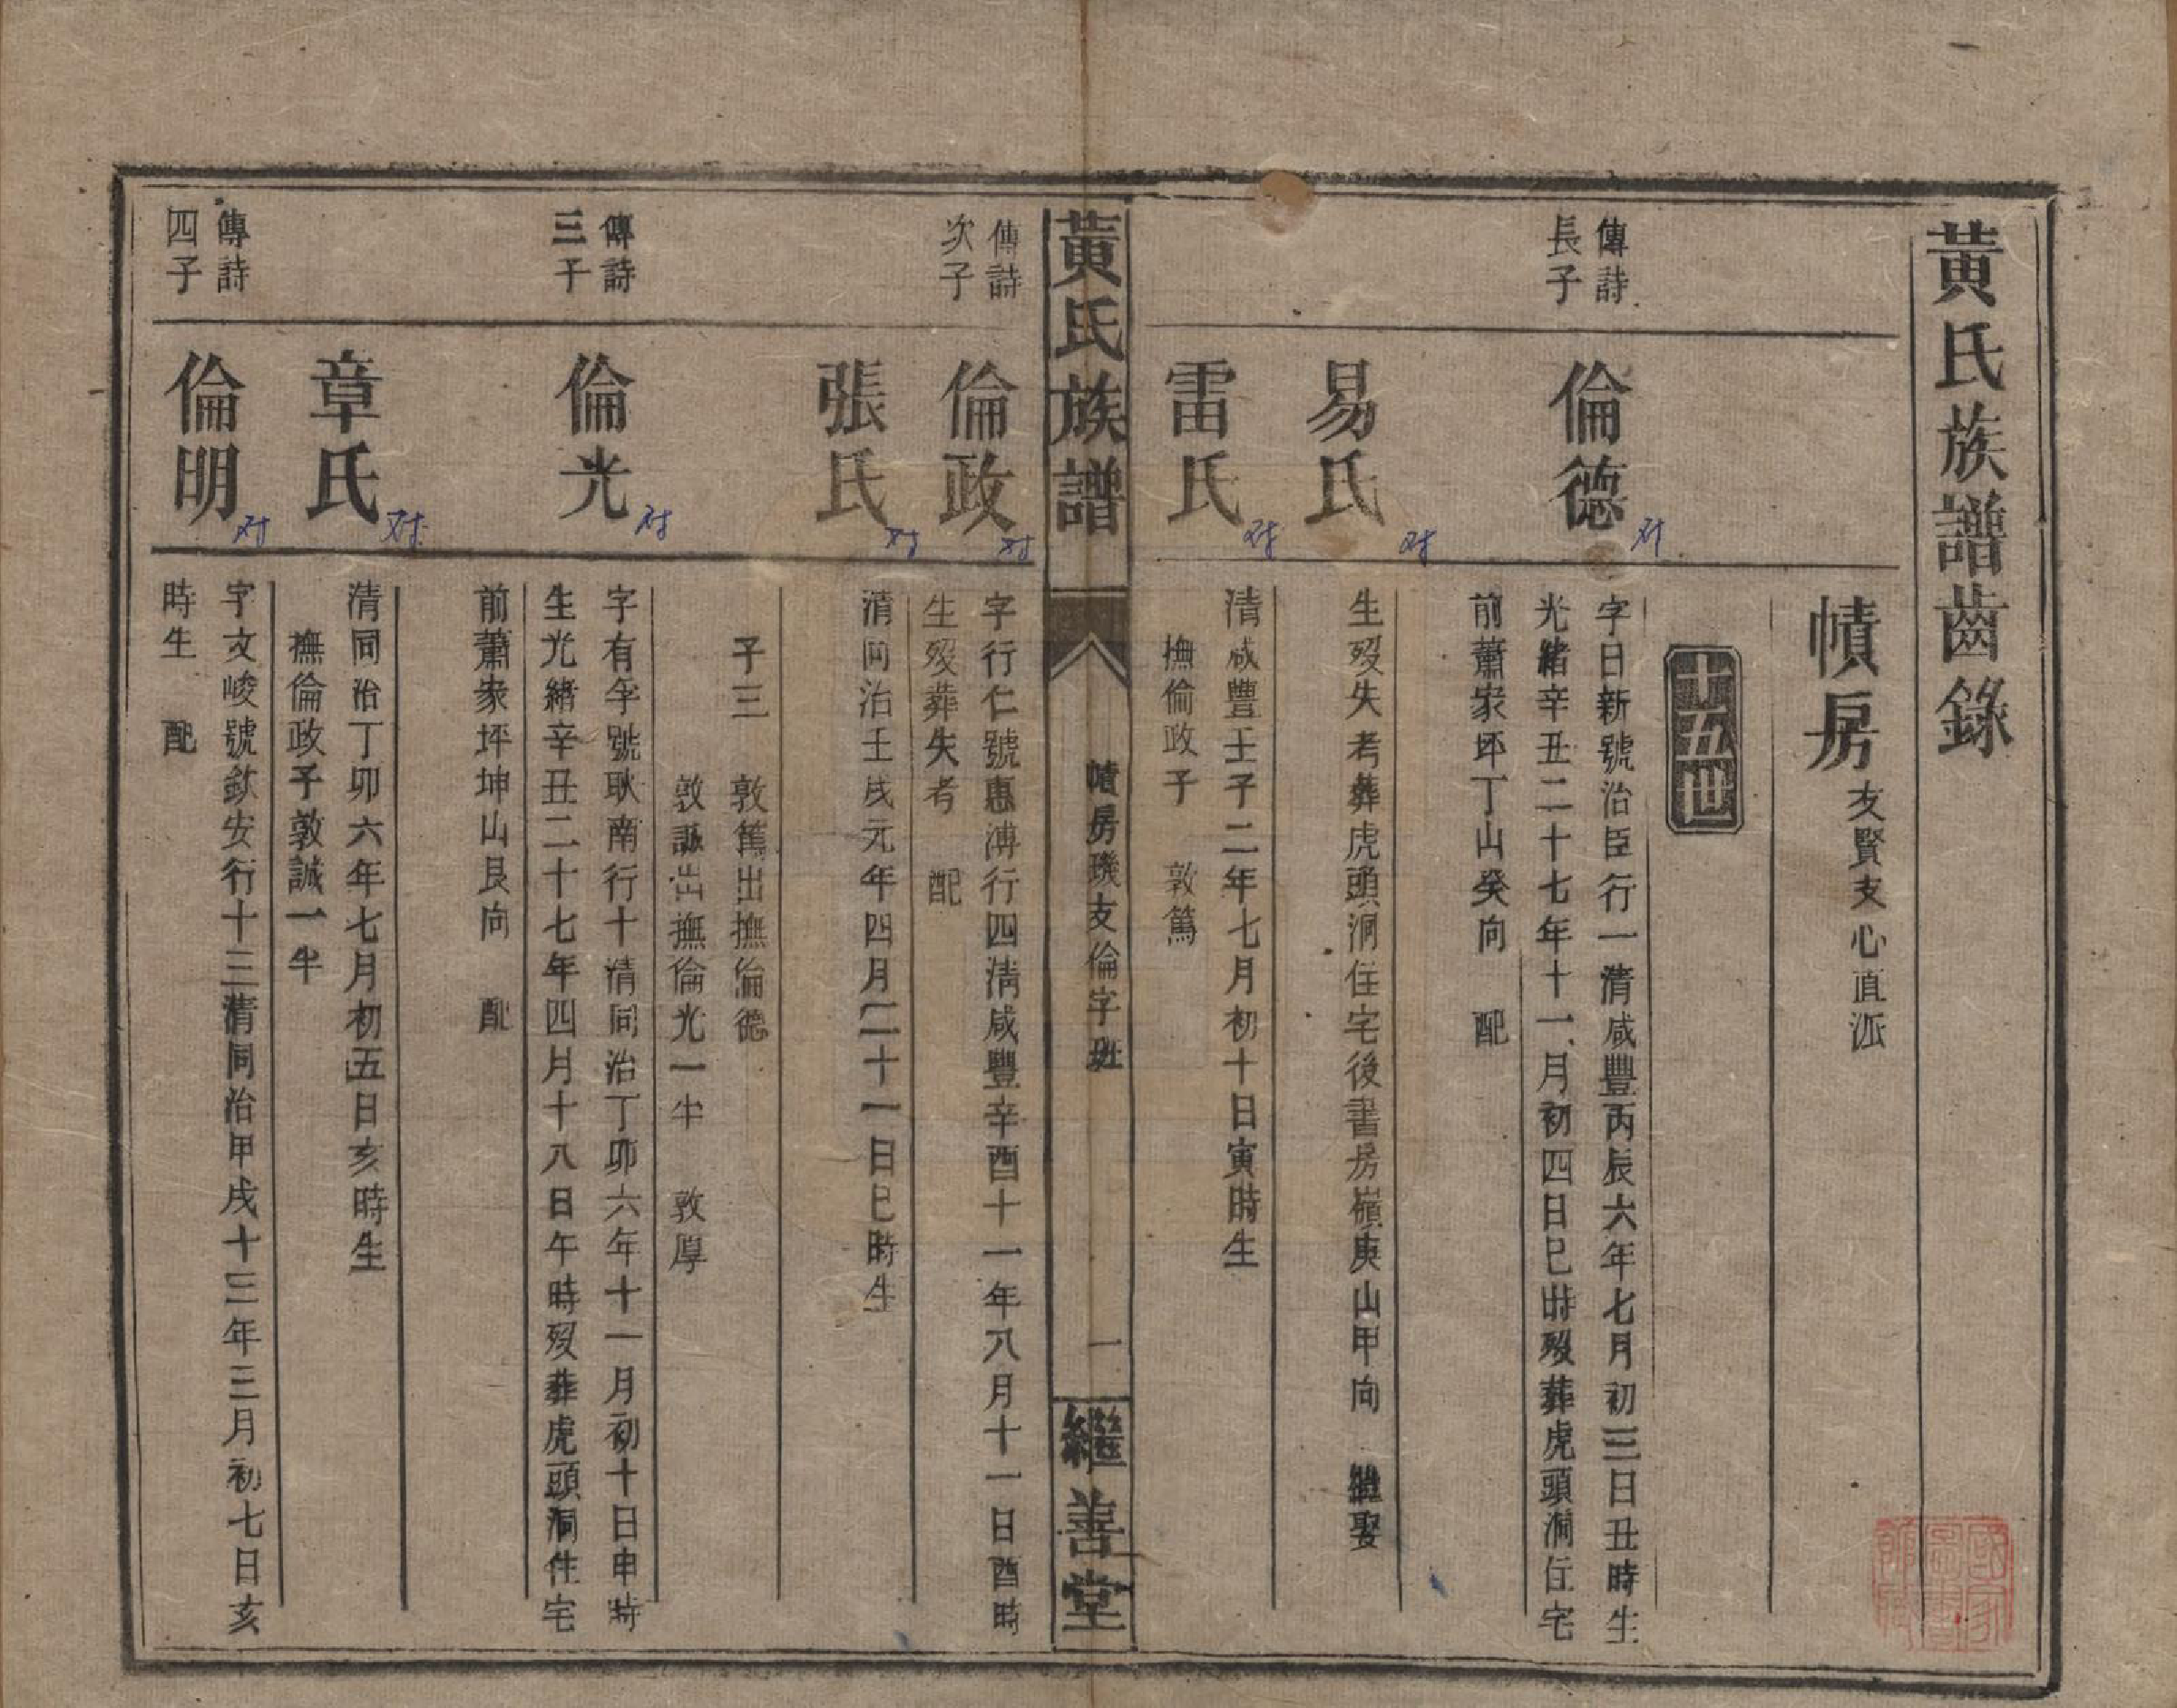 黃氏族譜齒錄
幘房 友賢支心直派
十五世
傳詩
長子
倫德
字日新號治臣行一清咸豐丙辰六年七月初三日丑時生
光緒辛丑二十七年十一月初四日巳時歿葬虎頭洞住宅
前蕭家坪丁山癸向 配
易氏
生歿失考葬虎頭洞住宅後書房嶺庚山甲向 繼娶
雷氏
清咸豐壬子二年七月初十日寅時生
撫倫政子 敦篤
黃氏族譜
幘房璣支倫字班
一
繼善堂
傳詩
次子
倫政
字行仁號惠溥行四清咸豐辛酉十一年八月十一日酉時
生歿葬失考 配
張氏
清同治壬戌元年四月二十一日巳時生
子三 敦篤出撫倫德
敦誠出撫倫光一半 敦厚
傳詩
三子
倫光
字有孚號耿南行十清同治丁卯六年十一月初十日申時
生光緒辛丑二十七年四月十八日午時歿葬虎頭洞住宅
前蕭家坪坤山艮向 配
章氏
清同治丁卯六年七月初五日亥時生
撫倫政子敦誠一半
傳詩
四子
倫明
字文峻號欽安行十三清同治甲戌十三年三月初七日亥
時生 配
对
对
对
对
对
对
对
对